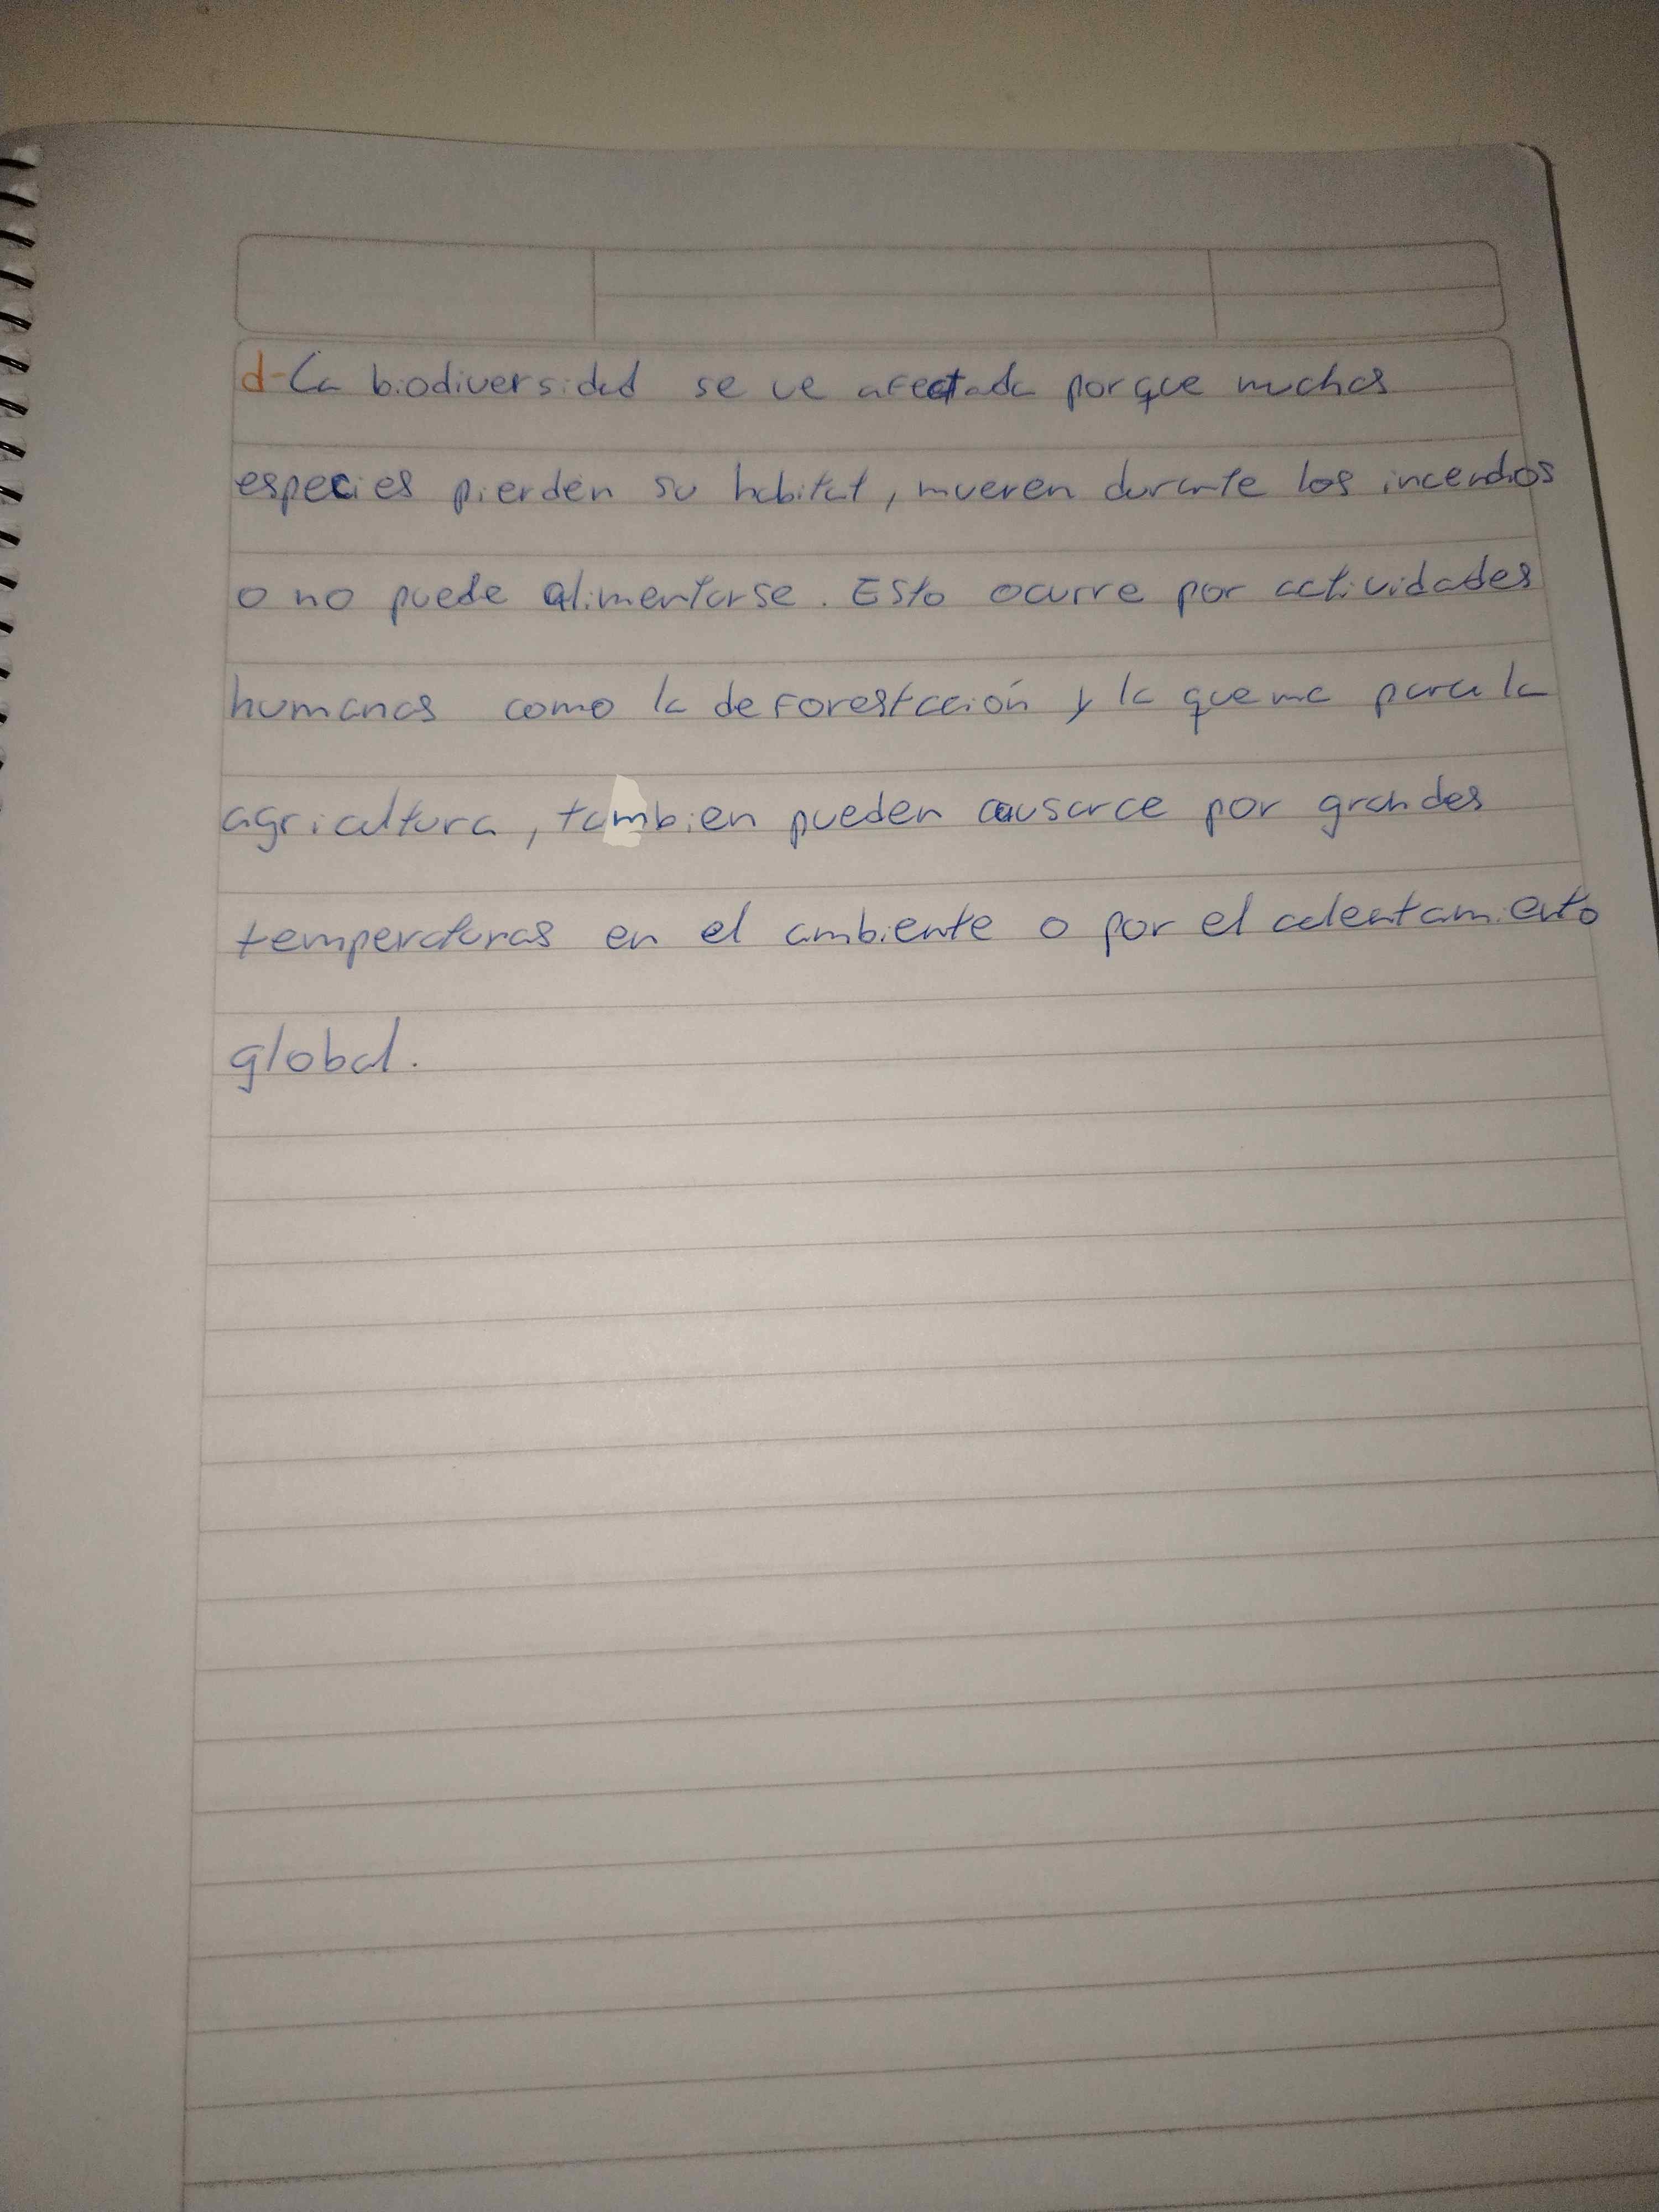 d- La biodiversidad se ve afectada porque muchas
especies pierden su habitat, mueren durante los incendios
o no puede alimentarse. Esto ocurre por actividades
humanas como la deforestación y la quema para la
agricultura, tambien pueden causarce por grandes
temperaturas en el ambiente o por el calentamiento
global.